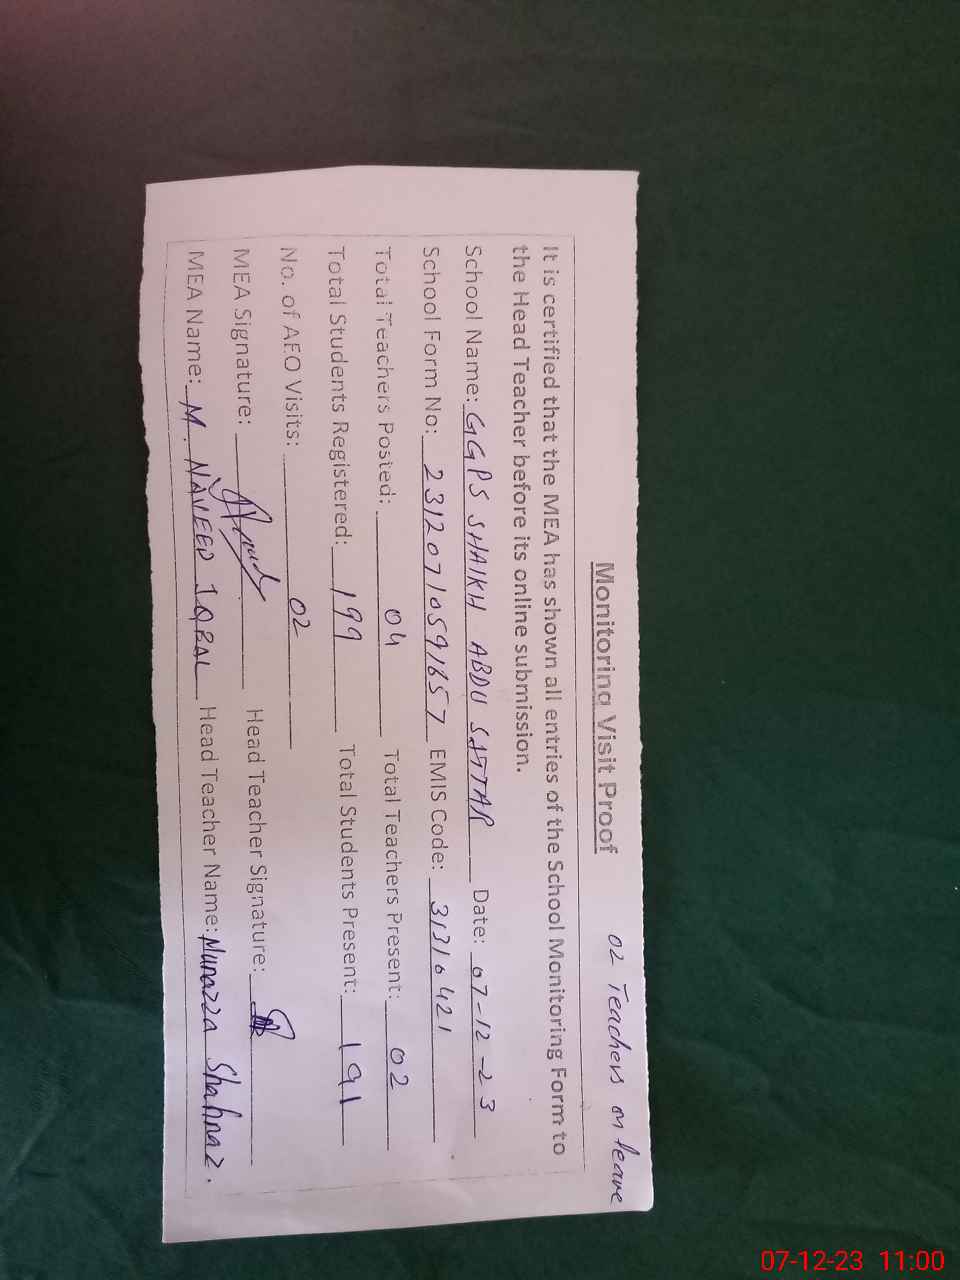 02 Teachers on leave
Monitoring Visit Proof
It is certified that the MEA has shown all entries of the School Monitoring Form to
the Head Teacher before its online submission.
School Name: GGPS SHAIKH ABDU SATTAR Date: 07-12-23
School Form No: 23120710591657 EMIS Code: 31310421
Total Teachers Posted: 04 Total Teachers Present: 02
Total Students Registered: 199 Total Students Present: 191
No. of AEO Visits: 02
MEA Signature: Head Teacher Signature:
MEA Name: M. NAVEED IQBAL Head Teacher Name: Munazza Shahnaz.
07-12-23 11:00